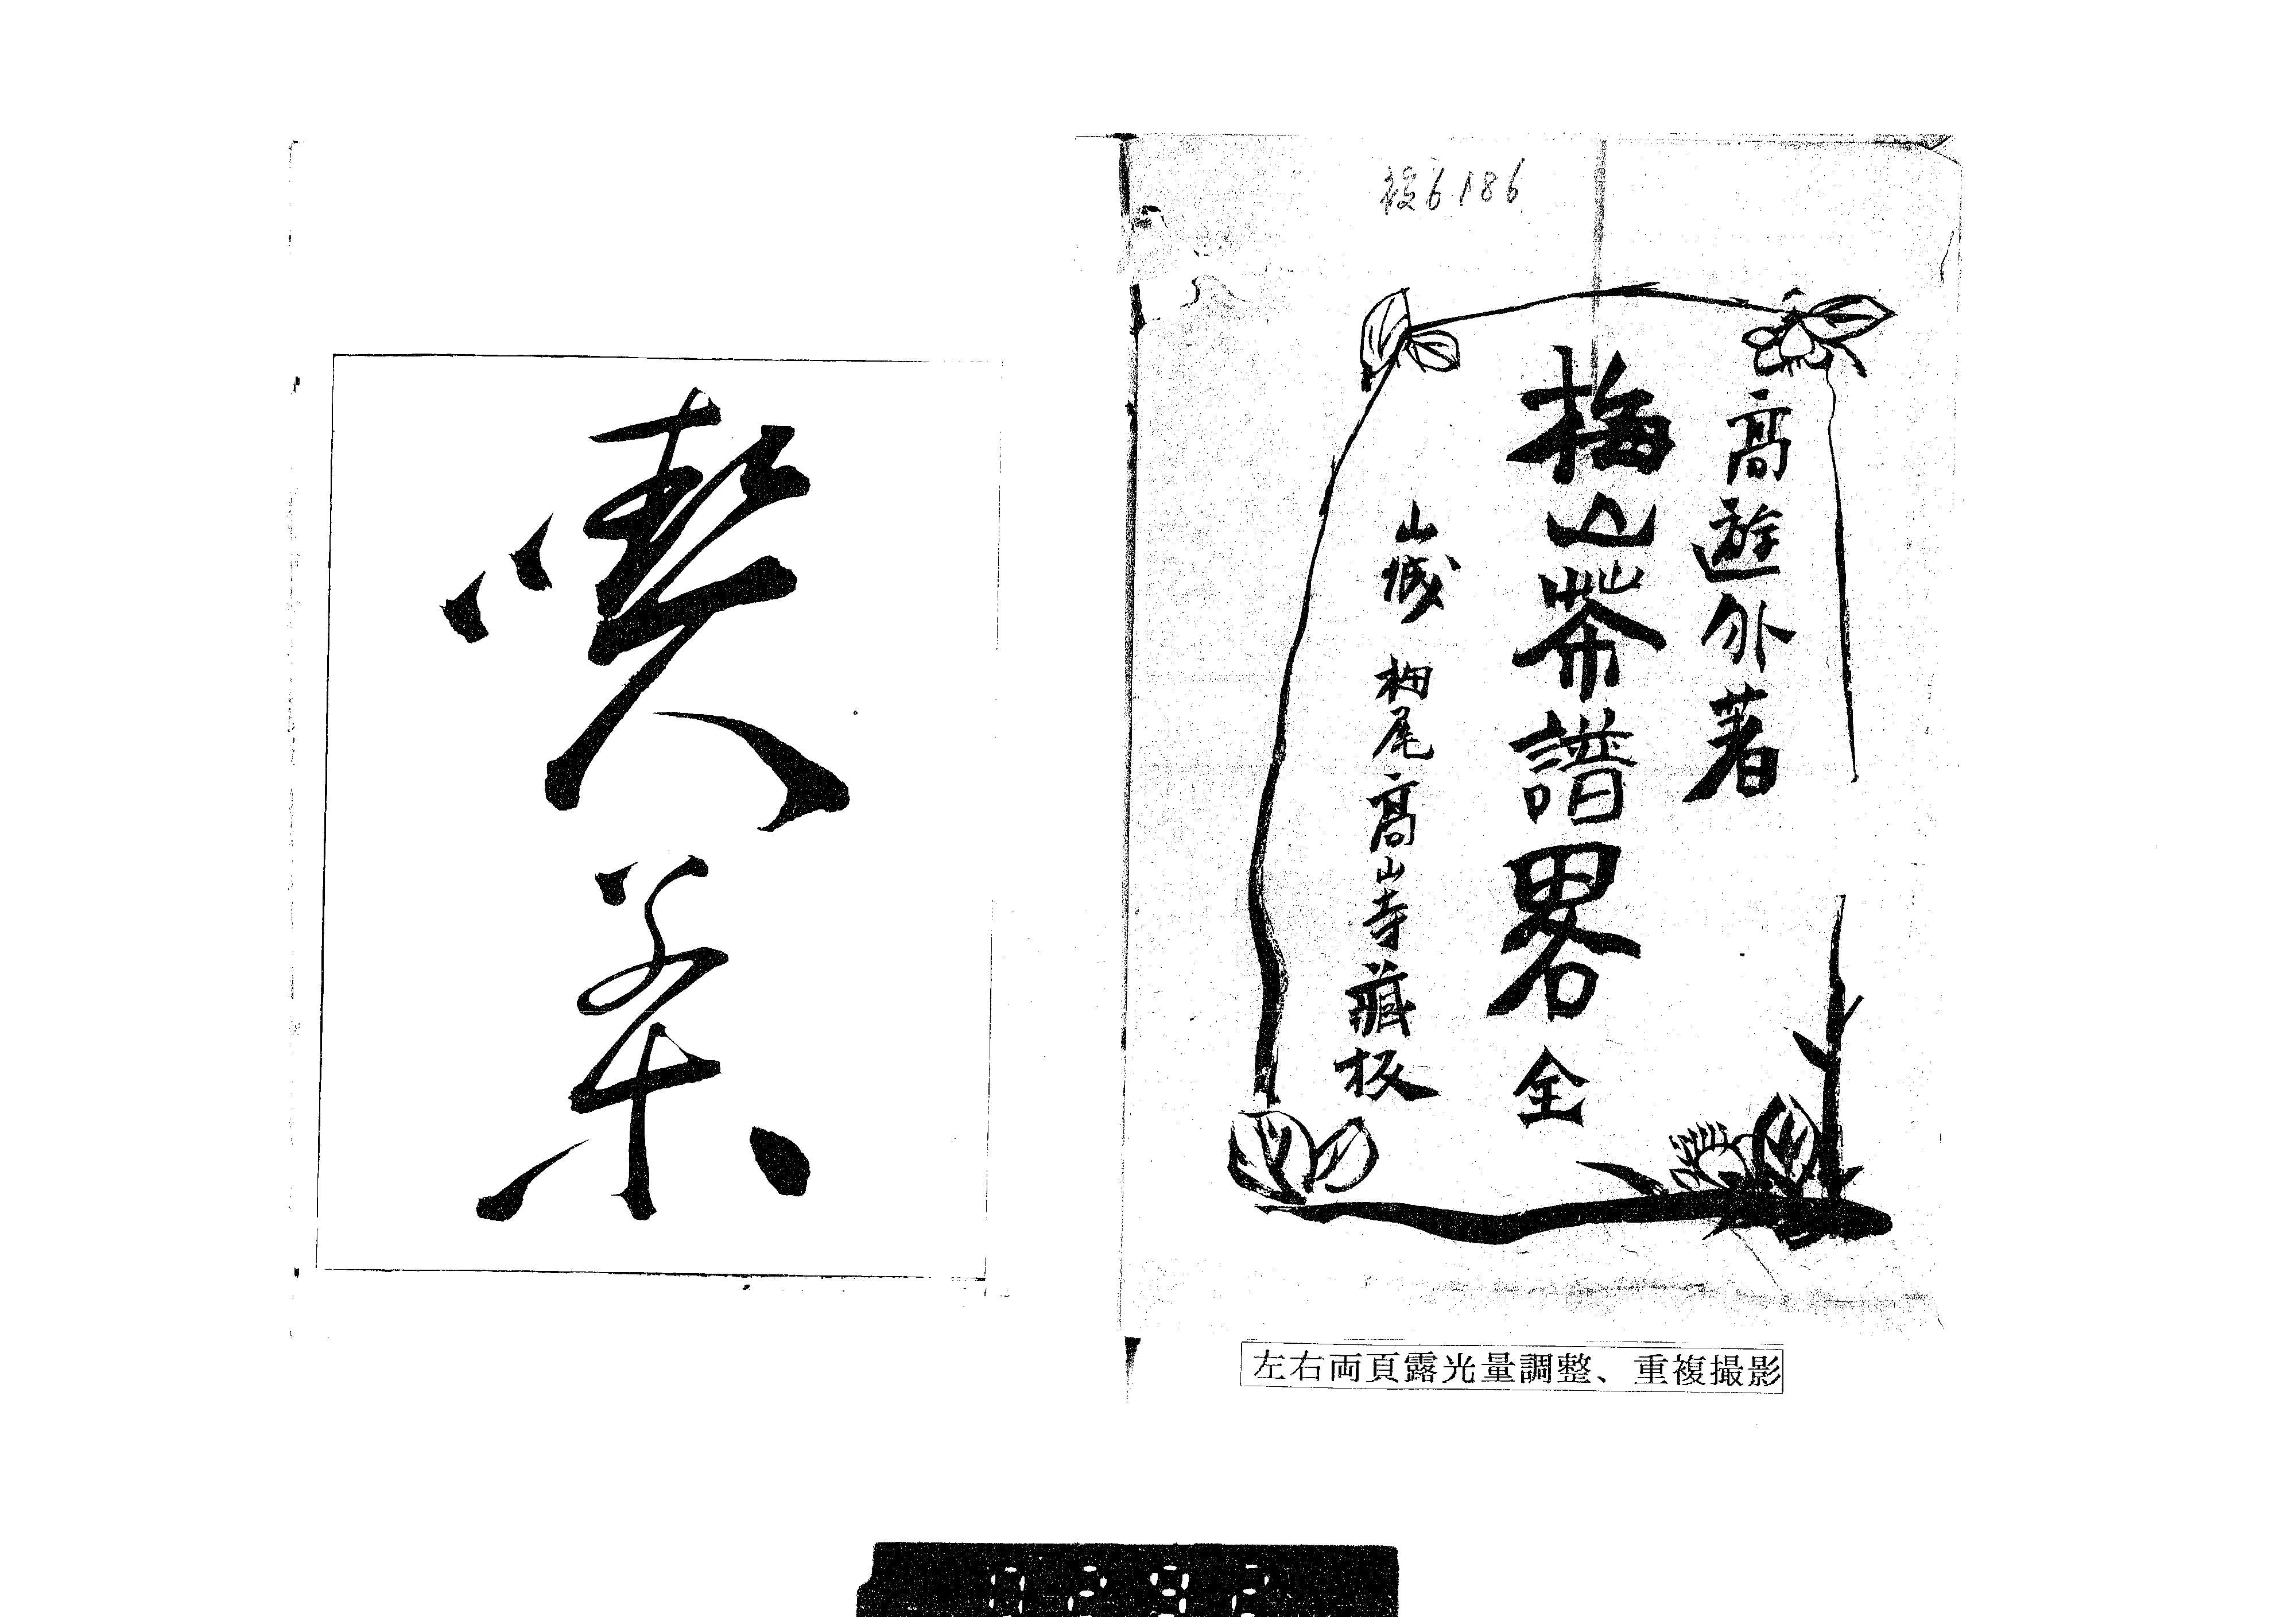 複6186
高遊外著
梅山茶譜畧 全
山城 栂尾高山寺藏板
喫茶
左右両頁露光量調整、重複撮影